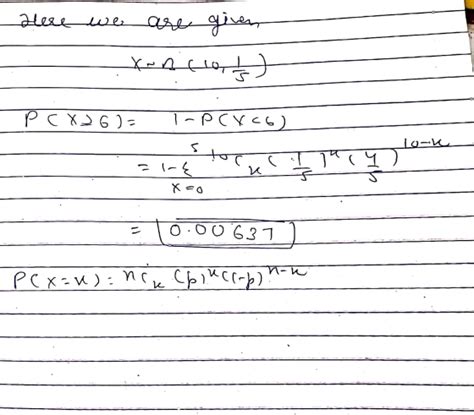 Here we are given
X~B(10, 1/5)
P(X≥6) = 1-P(X<6)
= 1-Σ⁵ₓ₌₀ ¹⁰Cₓ (1/5)ˣ (4/5)¹⁰⁻ˣ
= 0.00637
P(X=x) = nCₓ (p)ˣ (1-p)ⁿ⁻ˣ